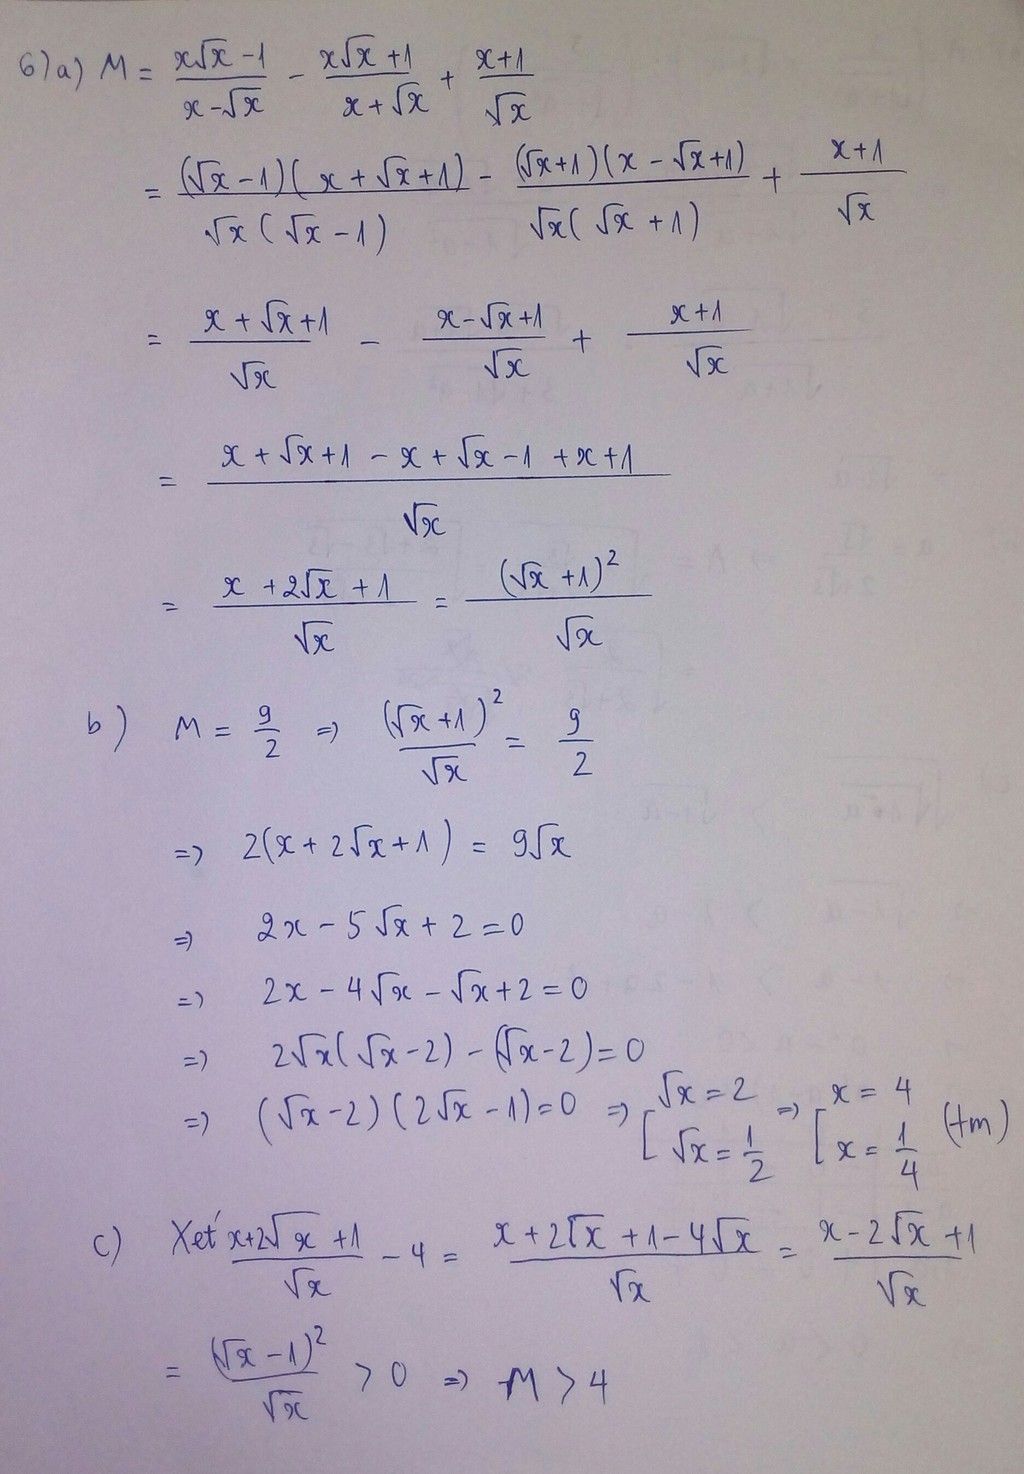 6)a) M = (x√x -1)/(x-√x) - (x√x +1)/(x+√x) + (x+1)/√x
= (√x -1)(x+√x+1)/√x(√x-1) - (√x+1)(x-√x+1)/√x(√x+1) + (x+1)/√x
= (x+√x+1)/√x - (x-√x+1)/√x + (x+1)/√x
= (x+√x+1-x+√x-1+x+1)/√x
= (x+2√x+1)/√x = (√x+1)²/√x
b) M = 9/2 => (√x+1)²/√x = 9/2
=> 2(x+2√x+1) = 9√x
=> 2x-5√x+2=0
=> 2x-4√x-√x+2=0
=> 2√x(√x-2)-(√x-2)=0
=> (√x-2)(2√x-1)=0 => [√x=2 √x=1/2 => [x=4 x=1/4 (tm)
c) Xét (x+2√x+1)/√x - 4 = (x+2√x+1-4√x)/√x = (x-2√x+1)/√x
= (√x-1)²/√x > 0 => M > 4